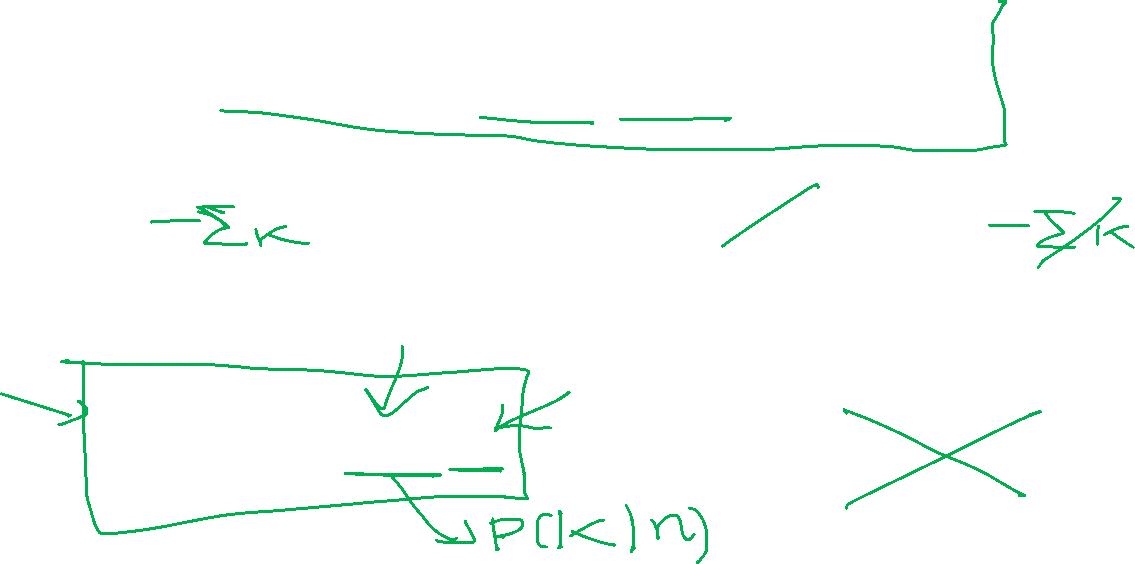 -Σk -Σk
P(k|n)